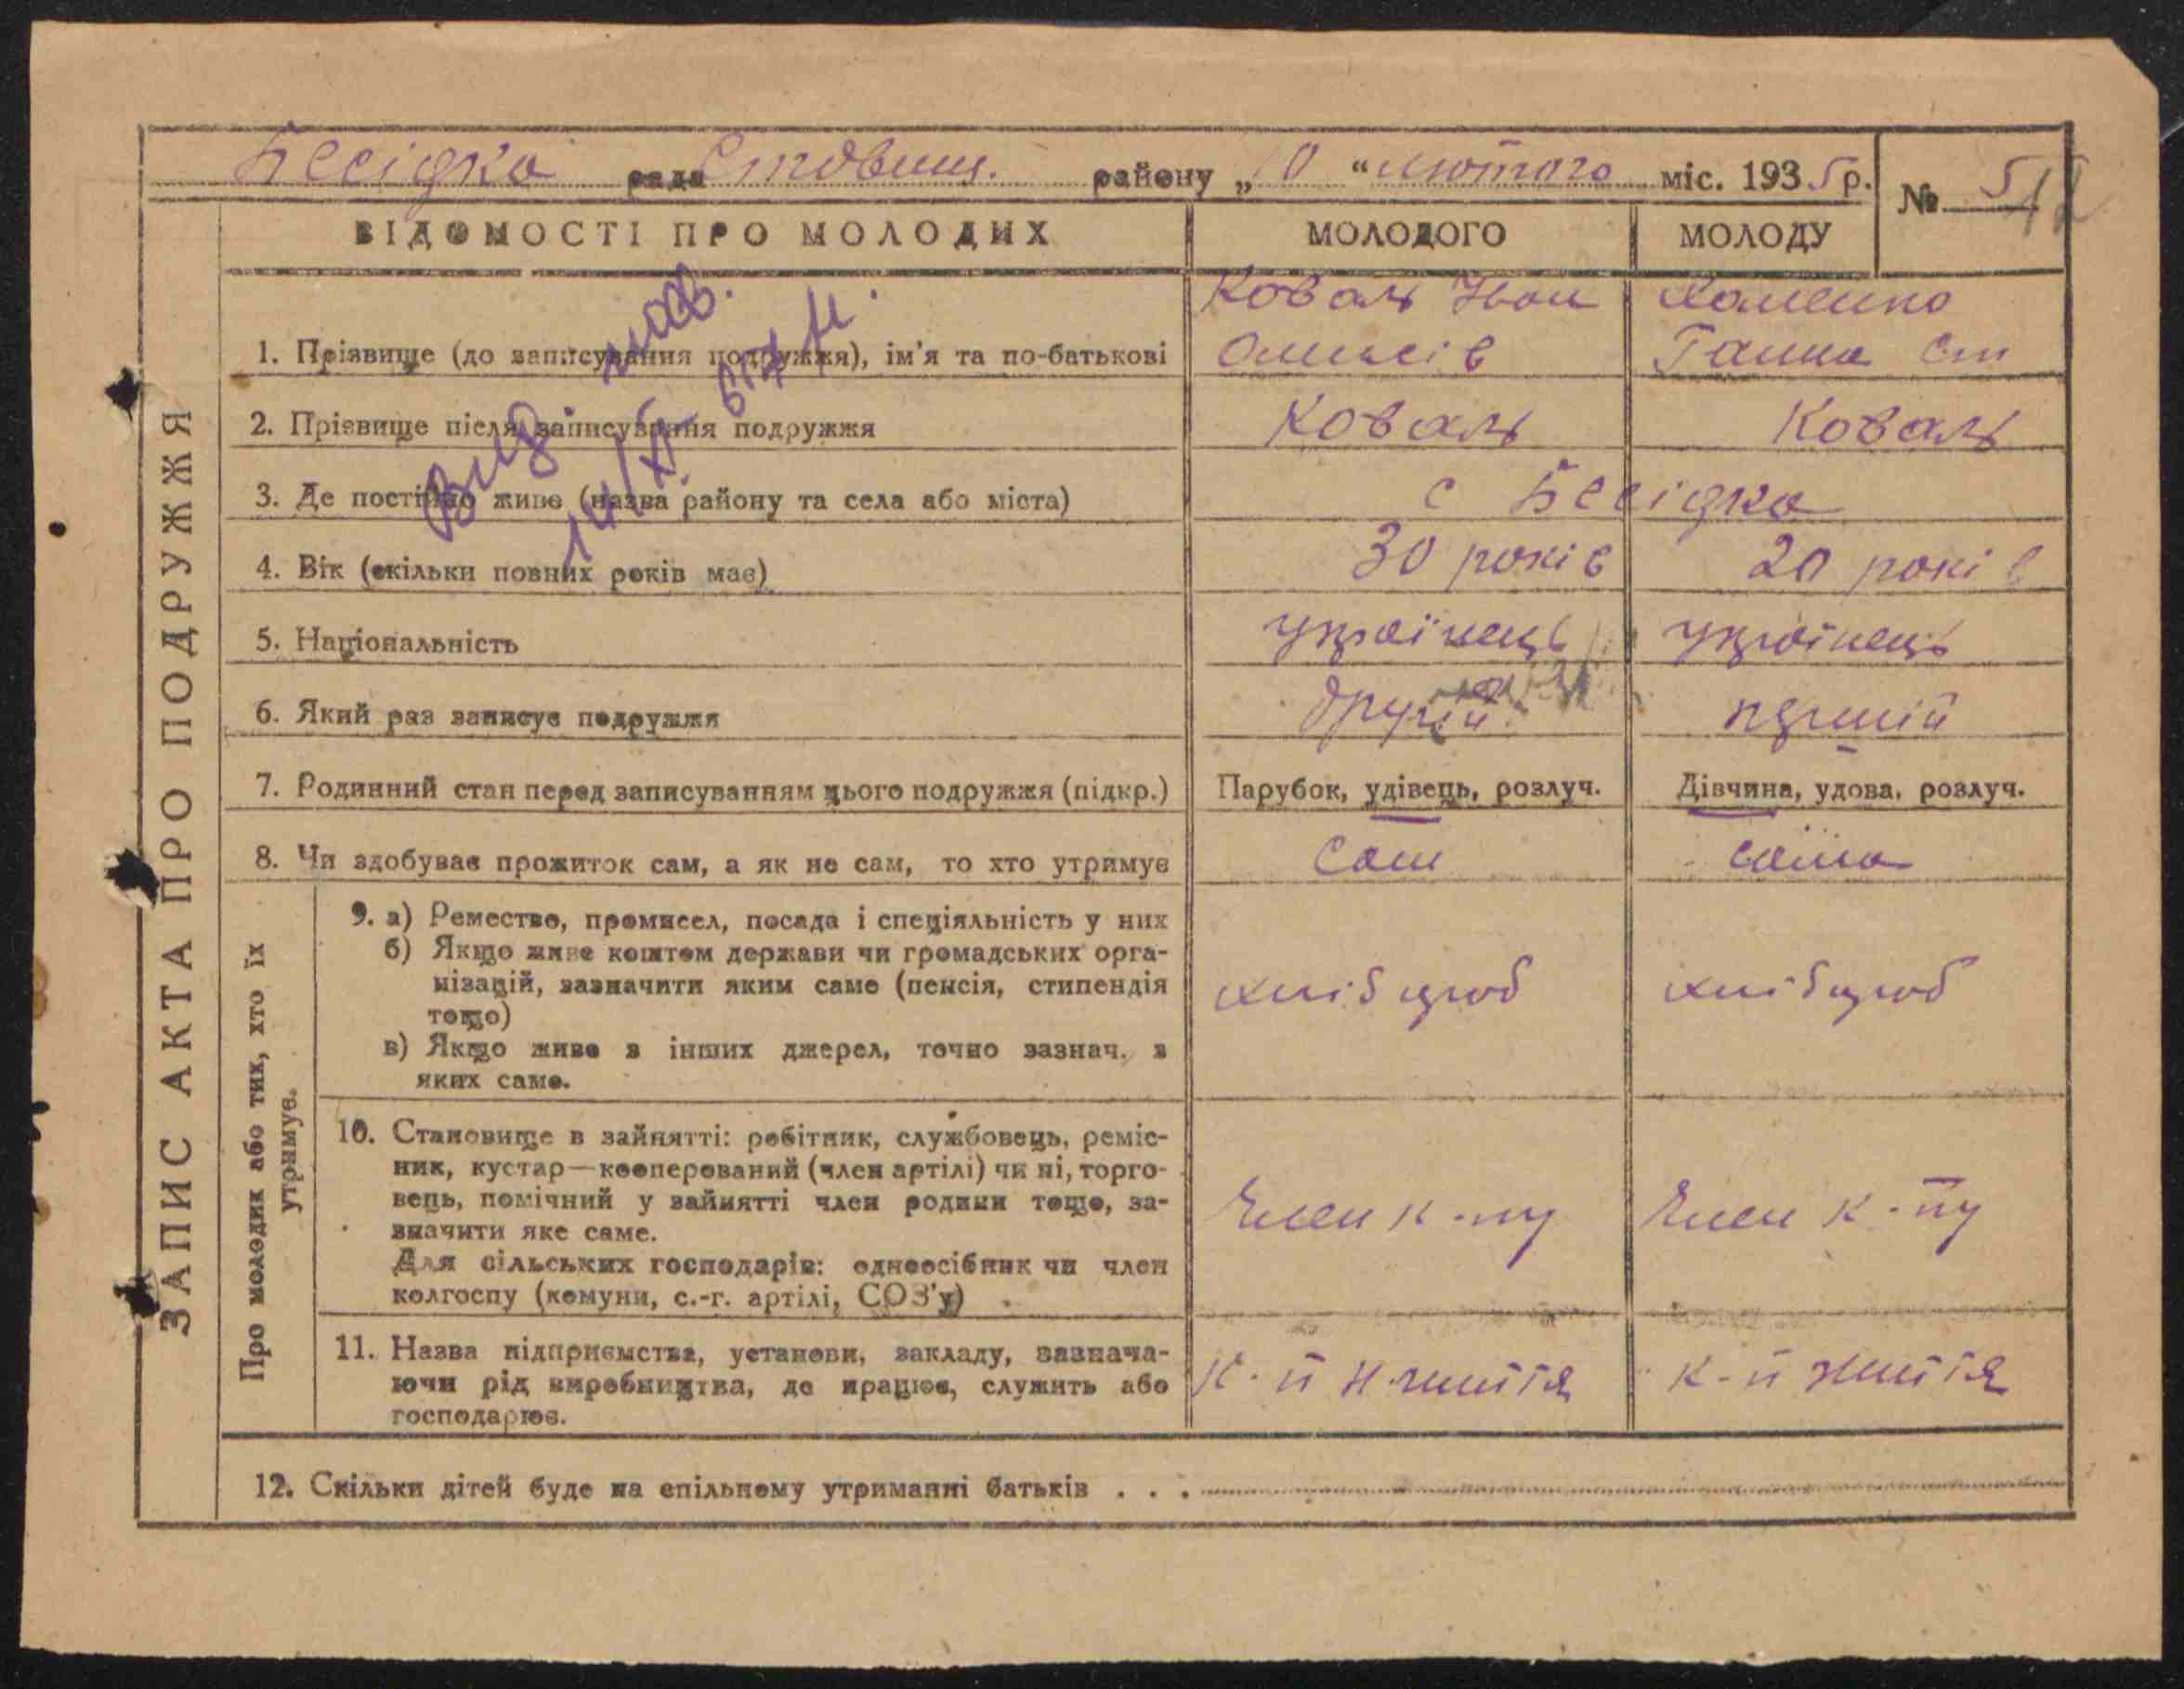 Бесідка рада Стовищ. району „10“ лютого міс. 1935 р. № 5
ВІДОМОСТІ ПРО МОЛОДИХ МОЛОДОГО МОЛОДУ
Коваль Іван
1. Прізвище (до записування подружжя), ім’я та по-батькові Ганна Ст
2. Прізвище після записування подружжя Коваль Коваль
3. Де постійно живе (назва району та села або міста) с Бесідка
4. Вік (скільки повних років має) 30 років 20 років
5. Національність українець українець
6. Який раз записує подружжя другій перший
7. Родинний стан перед записуванням цього подружжя (підкр.) Парубок, удівець, розлуч. Дівчина, удова, розлуч.
8. Чи здобуває прожиток сам, а як не сам, то хто утримує Сам сама
9. а) Ремество, промисел, посада і спеціяльність у них
б) Якщо живе коштом держави чи громадських орга-
нізацій, зазначити яким саме (пенсія, стипендія хлібороб хлібороб
тощо)
в) Якщо живе з інших джерел, точно зазнач. з
яких саме.
10. Становище в зайнятті: робітник, службовець, реміс-
ник, кустар—кооперований (член артілі) чи ні, торго-
вець, помічний у зайнятті член родини тощо, за- Член к-пу Член к-пу
значити яке саме.
Для сільських господарів: одноосібник чи член
колгоспу (комуни, с.-г. артілі, СОЗ’у)
11. Назва підприємства, установи, закладу, зазнача-
ючи рід виробництва, де працює, служить або к-п Н життя к-п життя
господарює.
12. Скільки дітей буде на спільному утриманні батьків . . .
ЗАПИС АКТА ПРО ПОДРУЖЖЯ
Про молодих або тих, хто їх
утримує.
Вид
14/XI